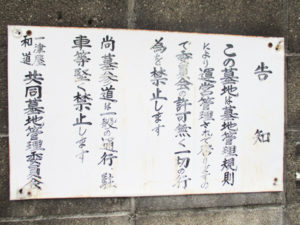 告知
この墓地は墓地管理規則
により運営管理されて居りますの
で委員会許可無く一切の行
為を禁止します
尚墓参道は一般の通行、駐
車等堅く禁止します
一津屋
和道
共同墓地管理委員会